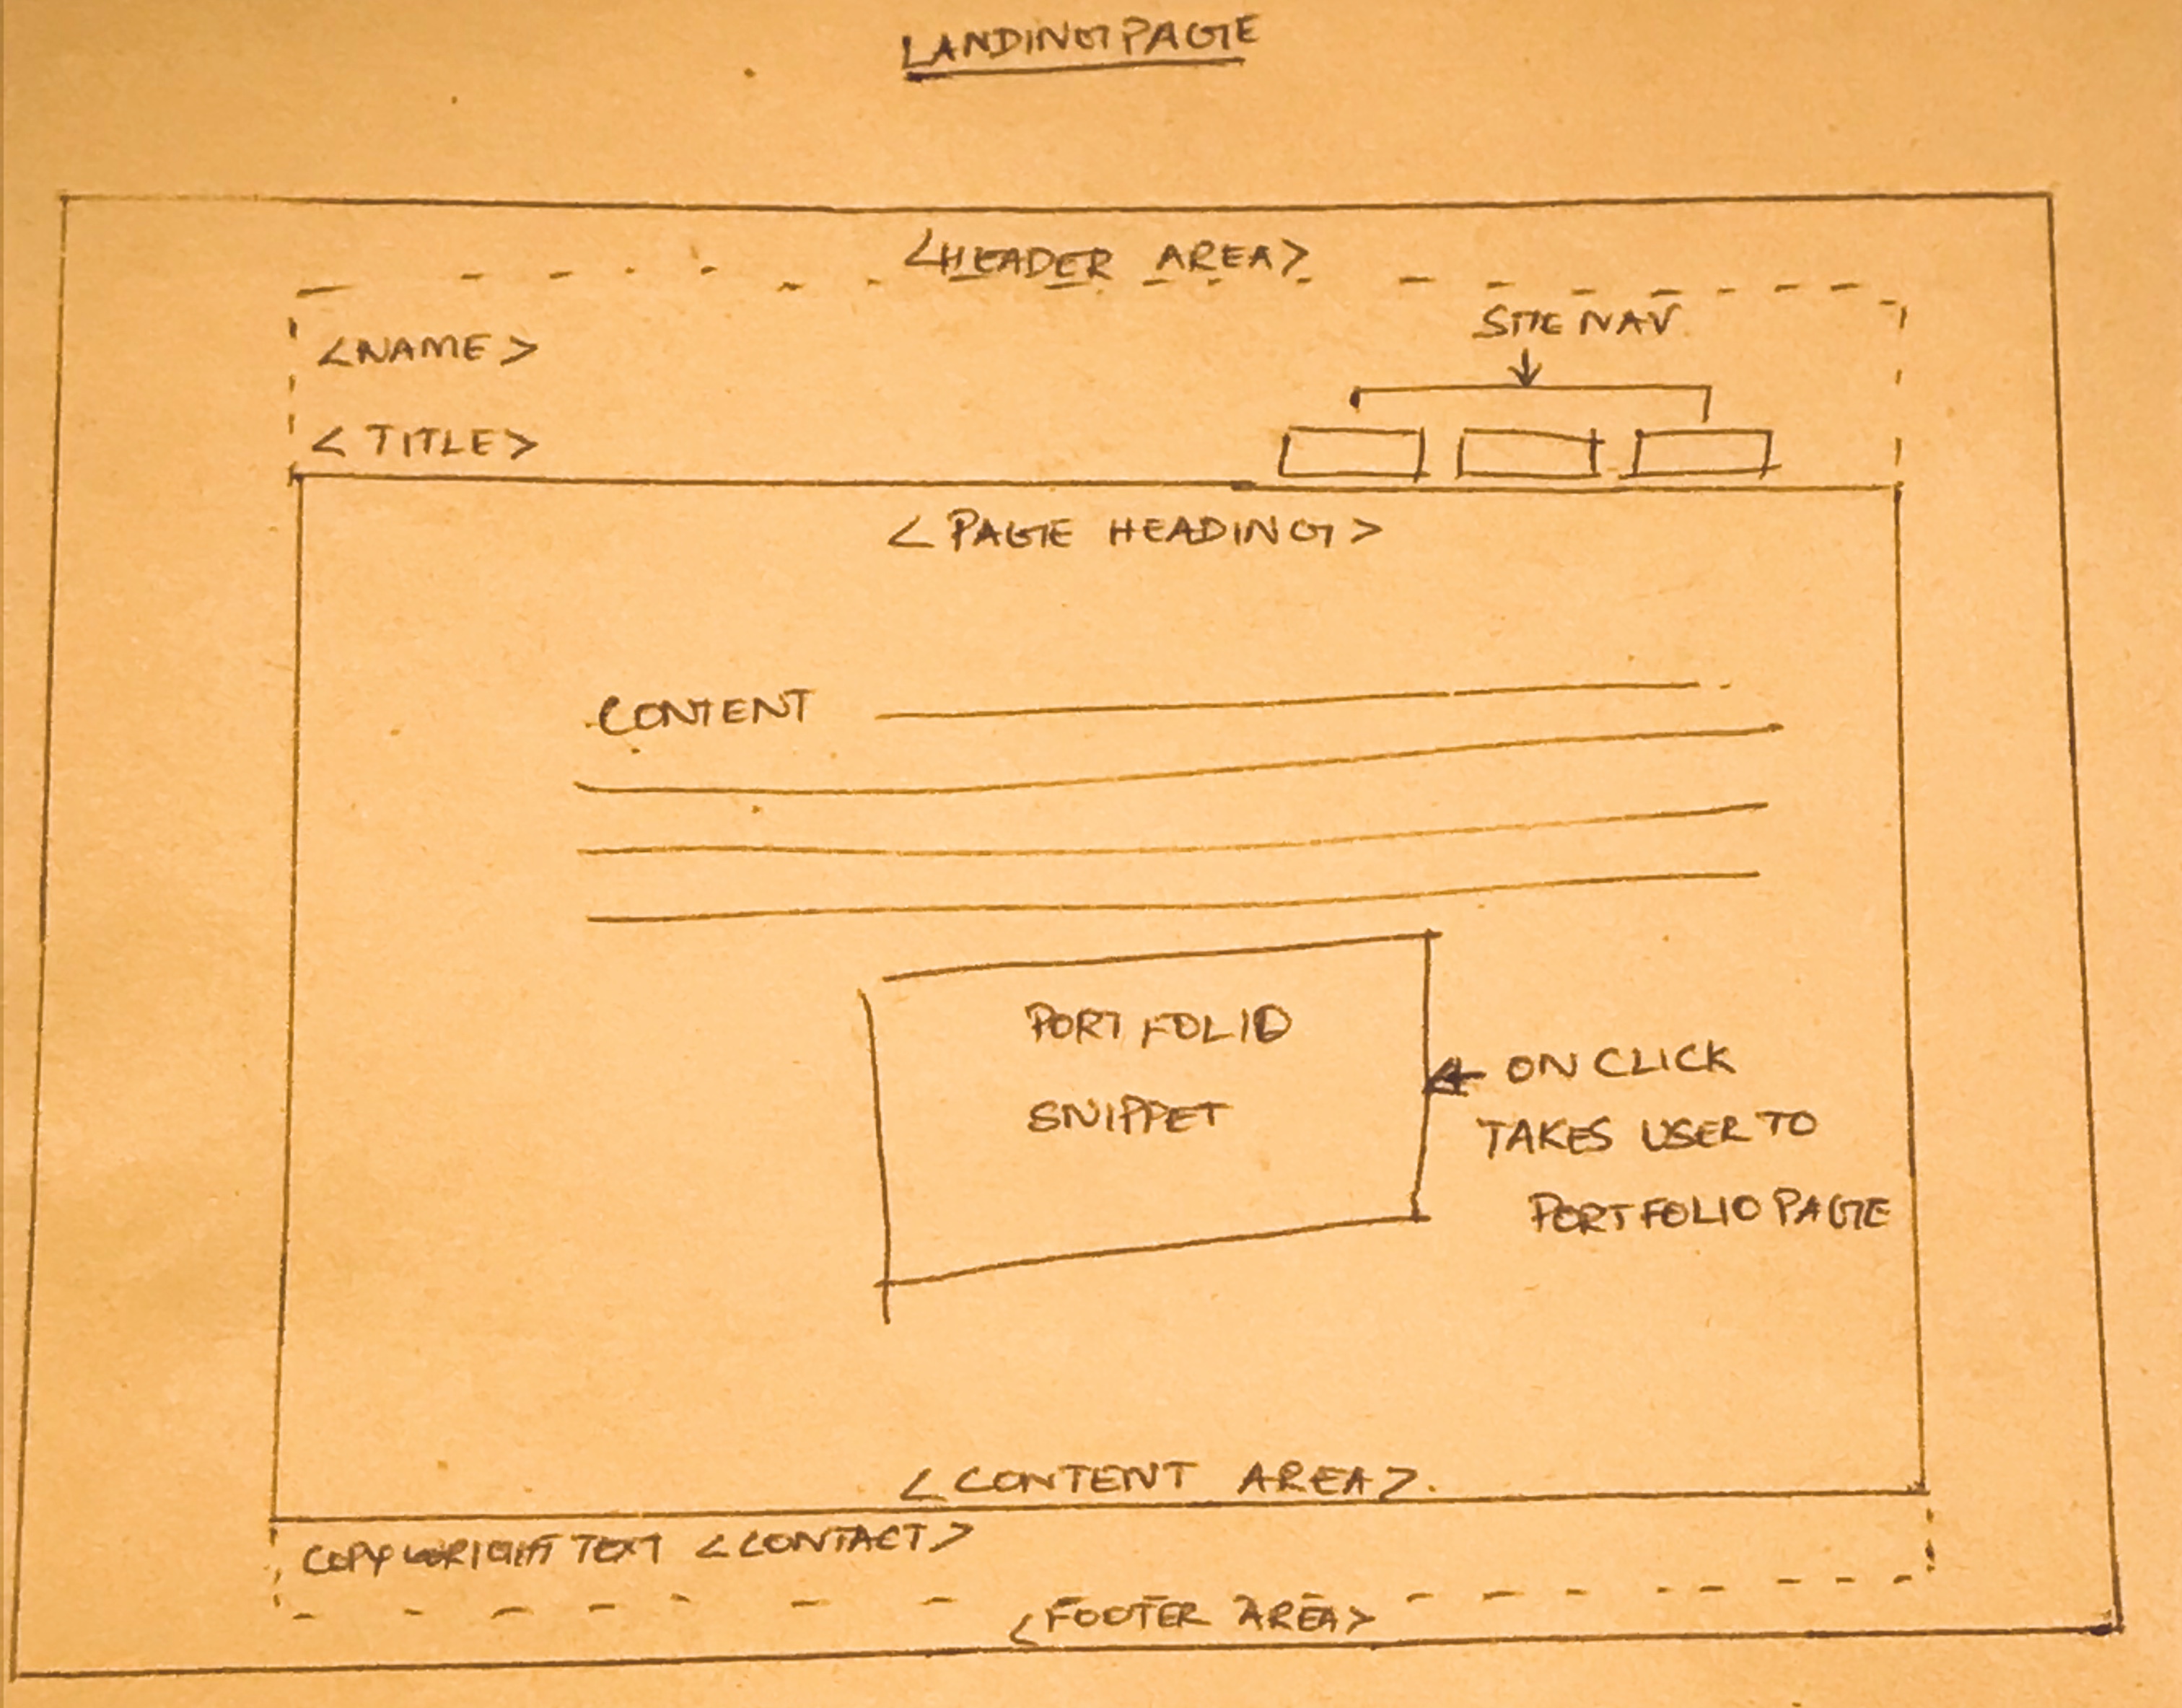 LANDING PAGE
<HEADER AREA>
<NAME>
SITE NAV
<TITLE>
<PAGE HEADING>
CONTENT
PORTFOLIO
SNIPPET
ON CLICK
TAKES USER TO
PORTFOLIO PAGE
<CONTENT AREA>.
TEXT <CONTACT>
<FOOTER AREA>